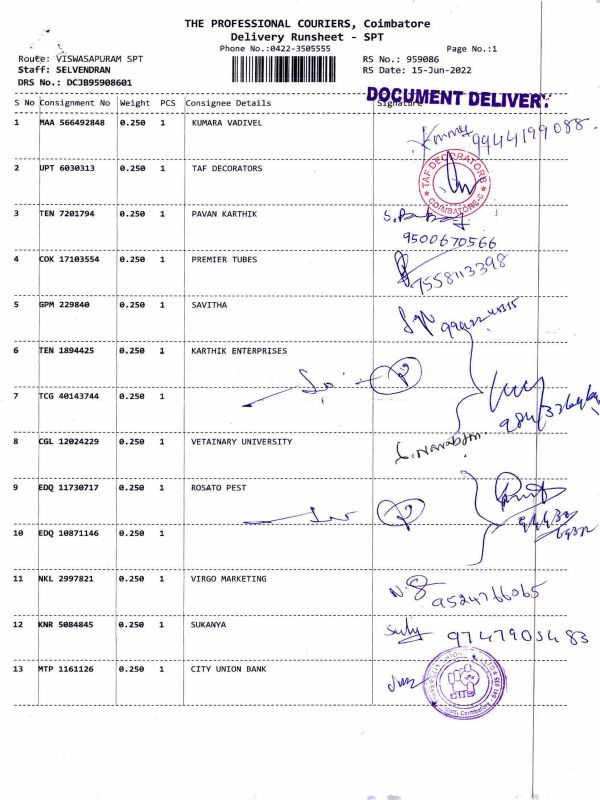 THE PROFESSIONAL COURIERS, Coimbatore
Delivery Runsheet - SPT
Phone No.:0422-3505555
Page No.:1
Route: VISWASAPURAM SPT
RS No.: 959086
Staff: SELVENDRAN
RS Date: 15-Jun-2022
DRS No.: DCJB95908601
DOCUMENT DELIVERY
S No Consignment No Weight PCS Consignee Details Signature
1 MAA 566492848 0.250 1 KUMARA VADIVEL
9944199088
2 UPT 6030313 0.250 1 TAF DECORATORS
TAF DECORATORS
COIMBATORE-6
3 TEN 7201794 0.250 1 PAVAN KARTHIK
9500670566
4 COK 17103554 0.250 1 PREMIER TUBES
7558113398
5 GPM 229840 0.250 1 SAVITHA
6 TEN 1894425 0.250 1 KARTHIK ENTERPRISES
7 TCG 40143744 0.250 1
8 CGL 12024229 0.250 1 VETAINARY UNIVERSITY
9 EDQ 11730717 0.250 1 ROSATO PEST
10 EDQ 10871146 0.250 1
11 NKL 2997821 0.250 1 VIRGO MARKETING
9524766065
12 KNR 5084845 0.250 1 SUKANYA
9747905483
13 MTP 1161126 0.250 1 CITY UNION BANK
CUB